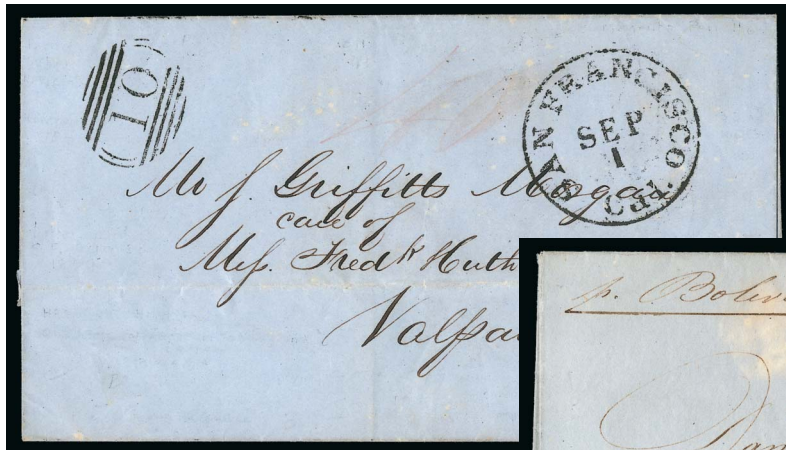 10
SAN FRANCISCO
SEP
1
Mr J. Griffitts Morgan
care of
Mess. Fredk Huth
Valpa
p. Boliv